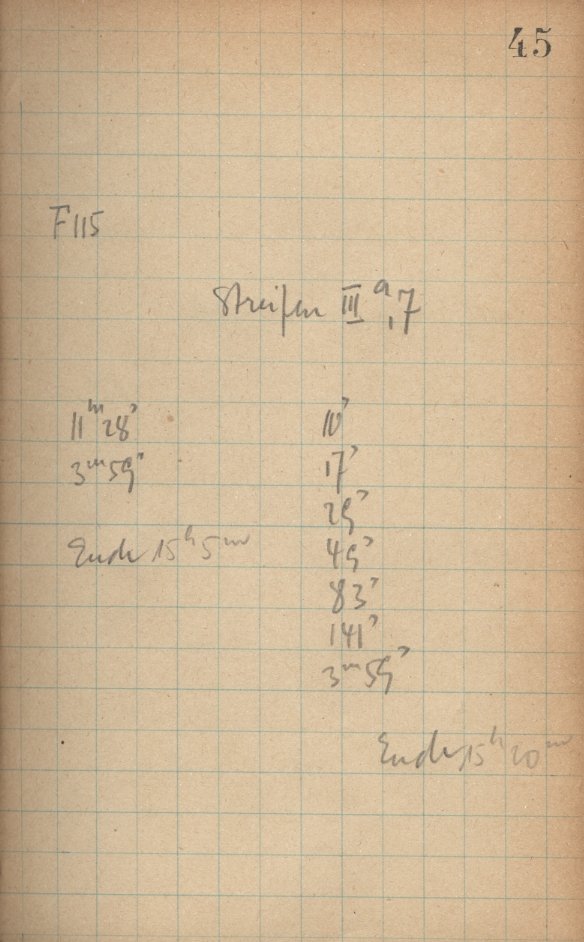 45
F115
Streifen III a,7
11m 28s
3m 59s
Ende 15h 5m
10s
17s
29s
49s
83s
141s
3m 59s
Ende 15h 20m